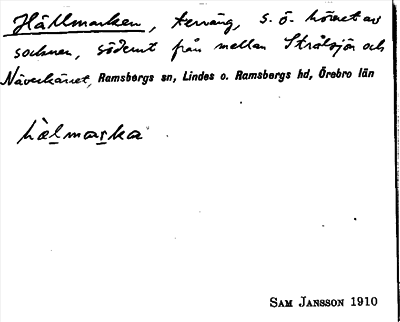 Hällmarken, terräng, s. ö. hörnet av
socknen, söderut från mellan Stråssjön och
Näverkärret, Ramsbergs sn, Lindes o. Ramsbergs hd, Örebro län
hälmarska
SAM JANSSON 1910